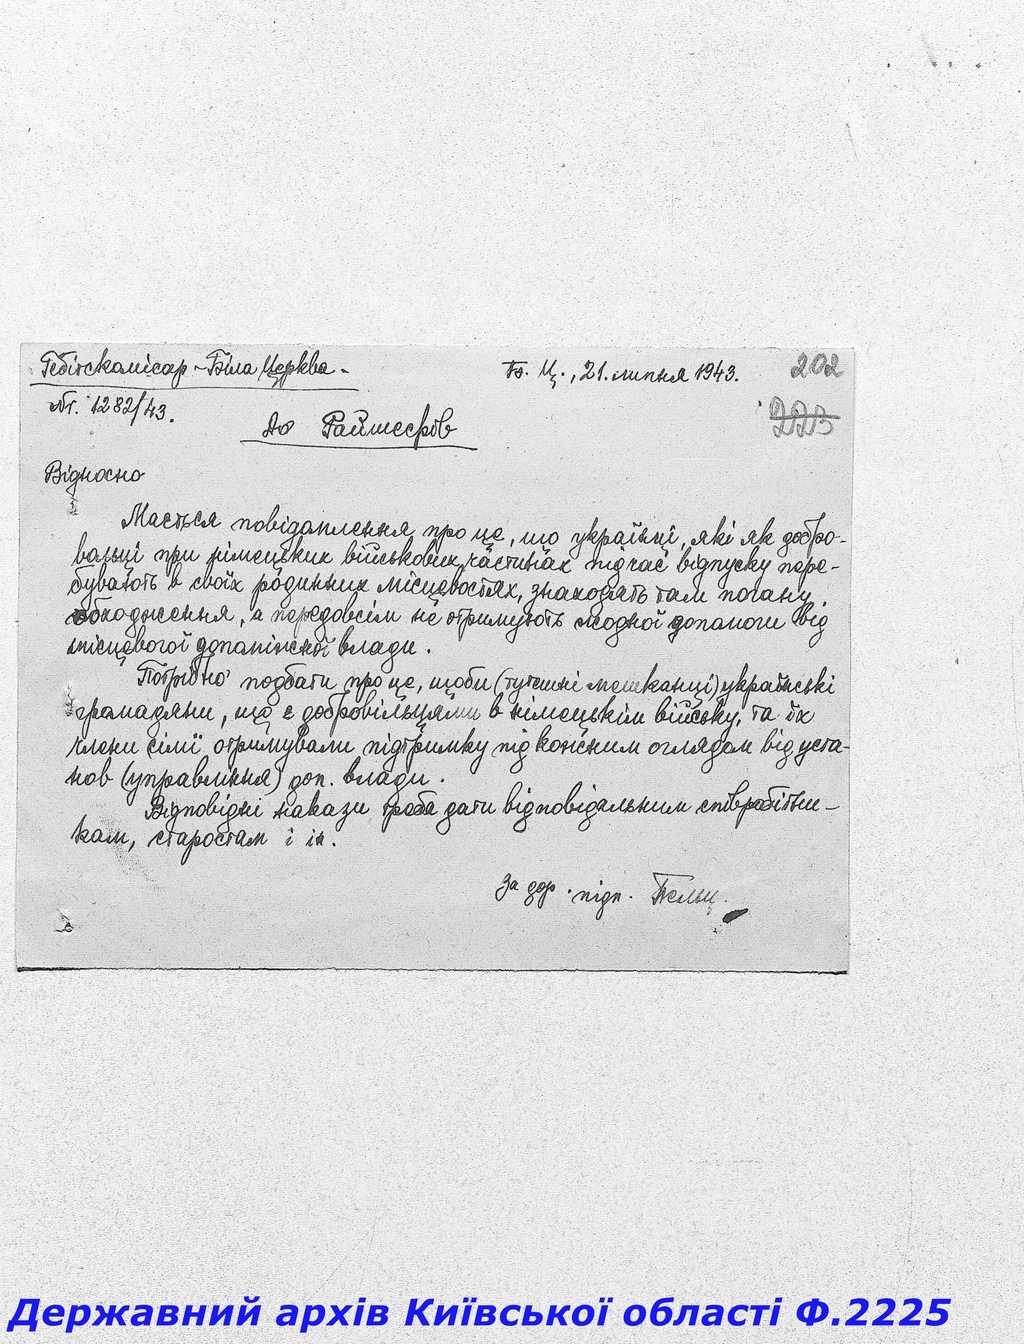 Гебітскомісар - Біла Церква -
Б. Ц., 21. липня 1943.
202
Nr. 1282/43.
223
До Раймеєрів
Відносно
Мається повідомлення про це, що українці, які як добро-
вольці при німецьких військових частинах підчас відпуску пере-
бувають в своїх родинних місцевостях, знаходять там погану
обходження, а передовсім не отримують жодної допомоги від
місцевої допоміжної влади.
Потрібно подбати про це, щоби (тутешні мешканці) українські
громадяни, що є добровільцями в німецькім війську, та їх
члени сімії отримували підтримку під кожним оглядом від уста-
нов (управління) доп. влади.
Відповідні накази треба дати відповідальним співробітни-
кам, старостам і ін.
За дор. підп. Пельц.
Державний архів Київської області Ф.2225